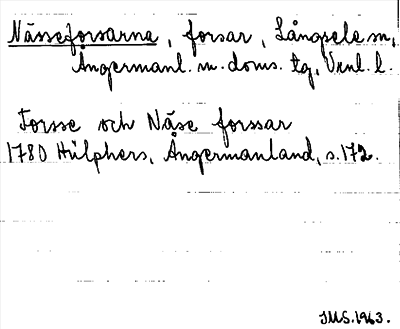 Nässeforsarna, forsar, Långsele sn,
Ångermanl. m. doms. tg, Vnl. l.
Forsse och Näse forssar
1780 Hülphers, Ångermanland, s. 172.
JMS. 1963.